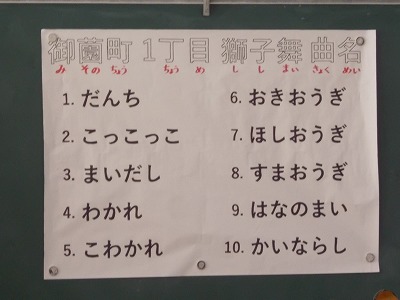 御薗町 1丁目 獅子舞 曲名
み その ちょう ちょう め し し まい きょく めい
1. だんち
2. こっこっこ
3. まいだし
4. わかれ
5. こわかれ
6. おきおうぎ
7. ほしおうぎ
8. すまおうぎ
9. はなのまい
10. かいならし